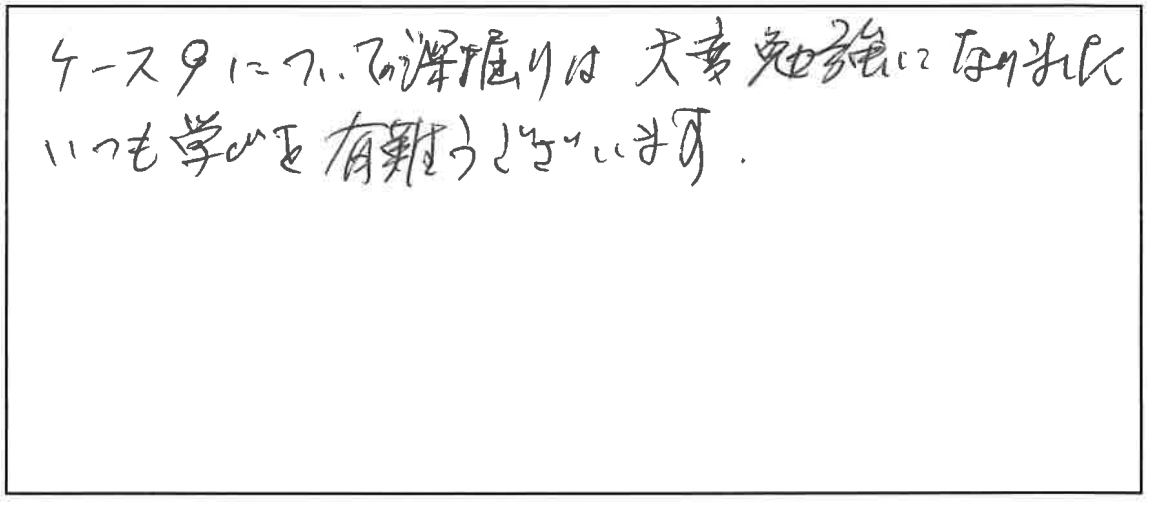 ケース9についての深掘りは大変勉強になりました
いつも学びを有難うございます.